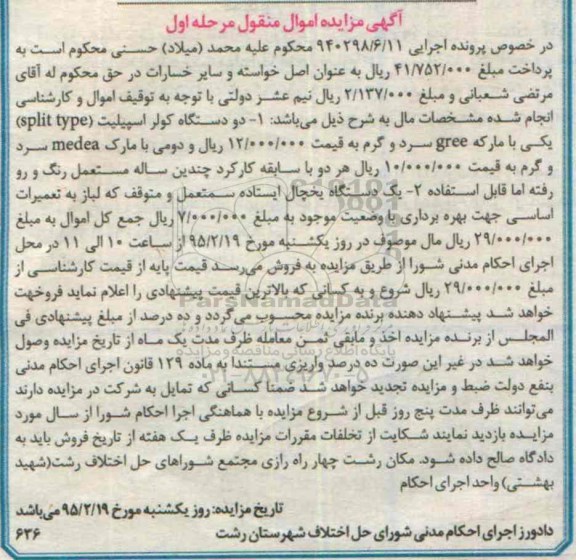 آگهی مزایده اموال منقول مرحله اول
در خصوص پرونده اجرایی ۹۴۰۲۹۸/۶/۱۱ محکوم علیه محمد (میلاد) حسنی محکوم است به
پرداخت مبلغ ۴۱/۷۵۲/۰۰۰ ریال به عنوان اصل خواسته و سایر خسارات در حق محکوم له آقای
مرتضی شعبانی و مبلغ ۲/۱۳۷/۰۰۰ ریال نیم عشر دولتی با توجه به توقیف اموال و کارشناسی
انجام شده مشخصات مال به شرح ذیل می‌باشد: ۱- دو دستگاه کولر اسپیلیت (split type)
یکی با مارکه gree سرد و گرم به قیمت ۱۲/۰۰۰/۰۰۰ ریال و دومی با مارک medea سرد
و گرم به قیمت ۱۰/۰۰۰/۰۰۰ ریال هر دو با سابقه کارکرد چندین ساله مستعمل رنگ و رو
رفته اما قابل استفاده ۲- یک دستگاه یخچال ایستاده سمتعمل و متوقف که لباز به تعمیرات
اساسی جهت بهره برداری با وضعیت موجود به مبلغ ۷/۰۰۰/۰۰۰ ریال جمع کل اموال به مبلغ
۲۹/۰۰۰/۰۰۰ ریال مال موصوف در روز یکشنبه مورخ ۹۵/۲/۱۹ از ساعت ۱۰ الی ۱۱ در محل
اجرای احکام مدنی شورا از طریق مزایده به فروش می‌رسد قیمت پایه از قیمت کارشناسی از
مبلغ ۲۹/۰۰۰/۰۰۰ ریال شروع و به کسانی که بالاترین قیمت پیشنهادی را اعلام نماید فروخهت
خواهد شد پیشنهاد دهنده برنده مزایده محسوب می‌گردد و ده درصد از مبلغ پیشنهادی فی
المجلس از برنده مزایده اخذ و مابقی ثمن معامله ظرف مدت یک ماه از تاریخ مزایده وصول
خواهد شد در غیر این صورت ده درصد واریزی مستندا به ماده ۱۲۹ قانون اجرای احکام مدنی
بنفع دولت ضبط و مزایده تجدید خواهد شد ضمنا کسانی که تمایل به شرکت در مزایده دارند
می‌توانند ظرف مدت پنج روز قبل از شروع مزایده با هماهنگی اجرا احکام شورا از سال مورد
مزایده بازدید نمایند شکایت از تخلفات مقررات مزایده ظرف یک هفته از تاریخ فروش باید به
دادگاه صالح داده شود. مکان رشت چهار راه رازی مجتمع شوراهای حل اختلاف رشت(شهید
بهشتی) واحد اجرای احکام
تاریخ مزایده: روز یکشنبه مورخ ۹۵/۲/۱۹ می‌باشد
دادورز اجرای احکام مدنی شورای حل اختلاف شهرستان رشت ۶۳۶
ParsNamadData
پایگاه اطلاع رسانی مناقصه و مزایده